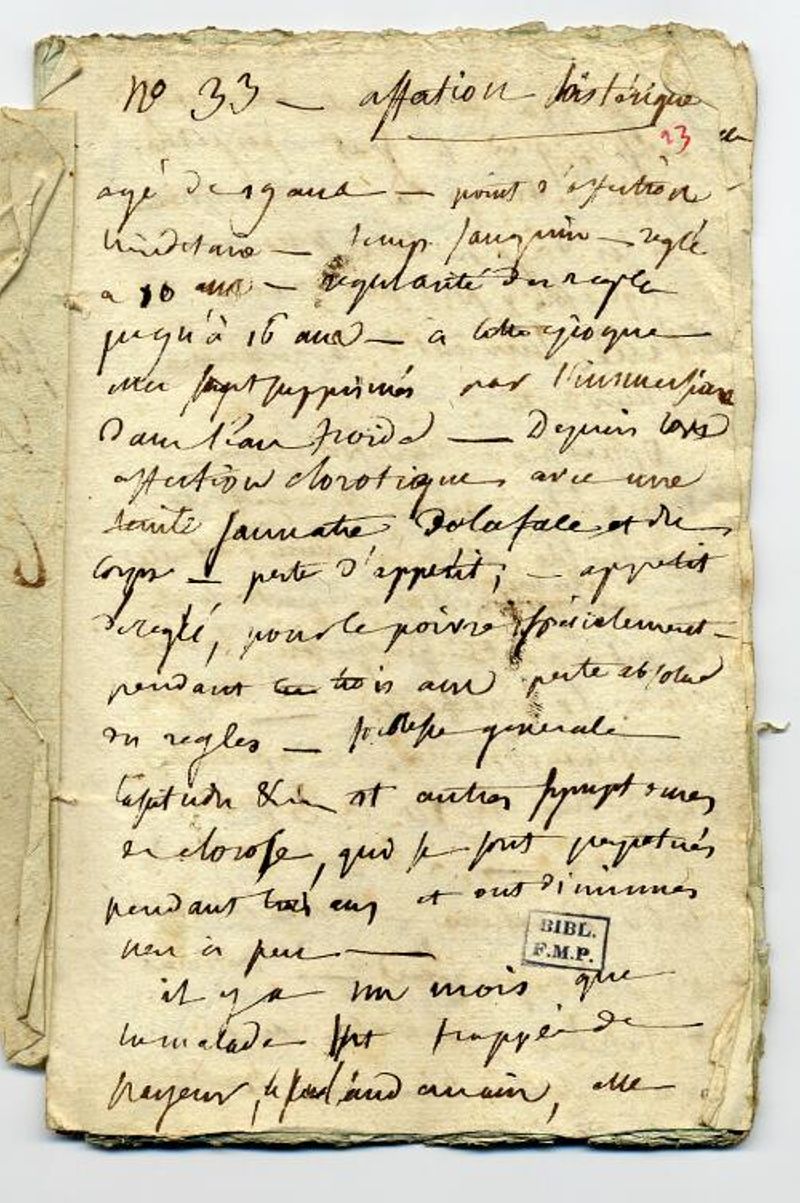 No 33 — affection histérique
23
agé de 19 ans — point d'affection
héréditaire — temp. sanguin — reglé
a 10 ans — regularité des regles
jusqu'à 16 ans — a cette epoque
supprimés par l'immersion
dans l'eau froide — Depuis lors
affection clorotique avec une
teinte jaunatre de la face et du
corps — perte d'appetit, — appetit
dereglé, pour le poivre specialement —
pendant trois ans perte absolue
des regles — foiblesse generale
lassitudes & et autres symptomes
de clorose, qui se sont perpetués
pendant trois ans et ont diminués
peu à peu —
BIBL.
F.M.P.
il y a un mois que
la malade fut frappée de
frayeur, le lendemain, elle